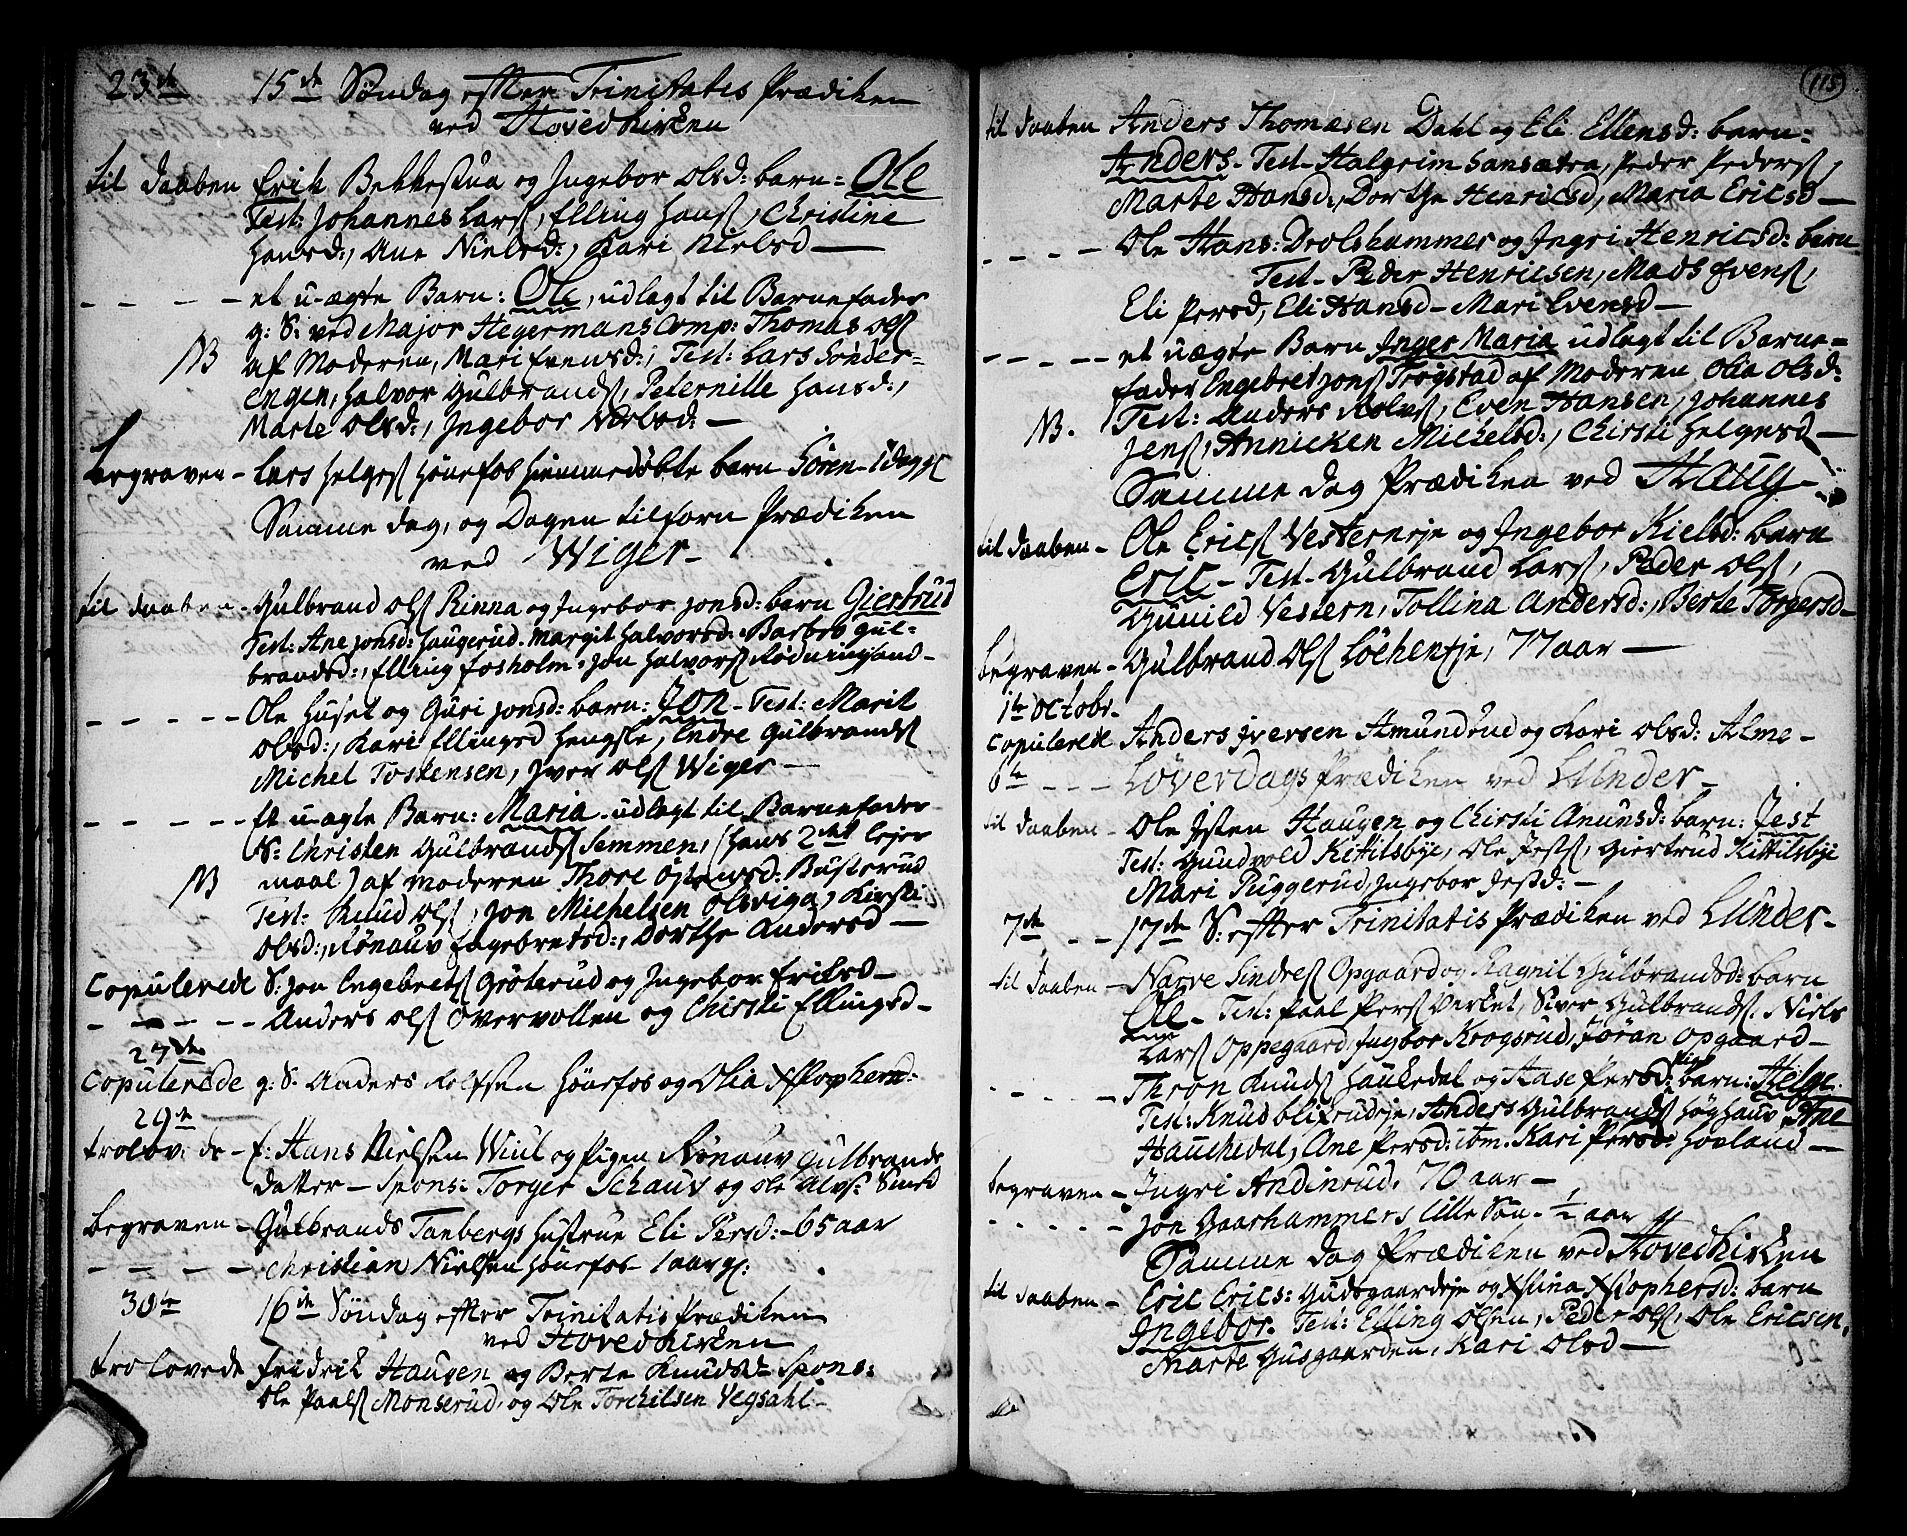 23de 15de Søndag efter Trinitatis Prædiken
ved Hovedkirken
til daaben Erik Bekkestua og Ingebor Olsd: barn: Ole
Test: Johannes Lars, Elling Hans, Christine
Hansd:, Ane Nielsd:, Kari Nielsd —
- - - - et u-ægte Barn: Ole, udlagt til Barnefader
g: S: ved Major Hegermans Comp: Thomas Ols
NB af Moderen, Mari Evensd:, Test: Lars Sønder-
engen, Halvor Gulbrands, Peternille Hansd:,
Marte Olsd:, Ingebor Nielsd: —
begraven - Lars Helges Hønefos hiemmedøbte barn Søren - 1 dag g:
Samme dag, og Dagen tilforn Prædiken
ved Wiger -
til daaben - Gulbrand Ols Rinna og Ingebor Jonsd: barn Giertrud
Test: Ane Jonsd: Haugerud. Margit Halvorsd: Barbro Gul-
brandsd:, Elling Fosholm. Jon Halvors Rødningsand -
- - - - Ole Huset og Guri Jonsd: barn: Jon - Test: Marit
Olsd:, Kari Ellingsd Hengsle, Endre Gulbrands
Michel Torkensen, Iver Ols Wiger —
- - - - Et u-ægte Barn: Maria udlagt til Barnefader
S: Christen Gulbrands Semmen, (hans 2det Lejer
NB maal) af moderen Thore Østensd: Busterud
Test: Knud Ols, Jon Michelsen Olsviga, Kirsti
Olsd:, Rønauv Engebretsd:, Dorthe Andersd —
Copulerede S: Jon Engebrets Grøterud og Ingebor Eriksd -
- - - - Anders Ols Overvollen og Chirsti Ellingsd -
27de
Copulerede g: S. Anders Rolfsen Hønefos og Olia Xstophersd:
29de
trolovede - f: Hans Nielsen Wiul og Pigen Rønauv Gulbrands
datter - Spons: Torger Schauv og Ole Alvs: Smed
begraven - Gulbrands Tanbergs Hustrue Eli Persd: - 65 aar
- - - - Christian Nielsen Hønefos 1 aar g:
30te 16de Søndag efter Trinitatis Prædiken
ved Hovedkirken
trolovede Fridrik Haugen og Berte Knudsd - Spons:
Ole Paals Monserud, og Ole Torchilsen Vegsahl -
115
til daaben Anders Thomæsen Dahl og Eli Ellensd: barn:
Anders - Test - Halgrim Sansætra, Peder Peders,
Marte Hansd:, Dorthe Henricsd, Maria Ericsd —
- - - - Ole Hans: Drolshammer og Ingri Henricsd: barn
Test - Peder Henricsen, Mads Evens,
Eli Persd, Eli Hansd - Mari Evensd —
- - - - et uægte Barn Inger Maria udlagt til Barne-
fader Engebret Jons Trøgstad af Moderen Olia Olsd:
NB. Test: Anders Rolvs, Even Hansen, Johannes
Jens, Annicken Michelsd:, Chirsti Helgesd —
Samme dag Prædiken ved Haug -
til daaben - Ole Erics Vesterneje og Ingebor Kielsd: barn
Eric - Test - Gulbrand Lars, Peder Ols,
Gunild Vestern, Tollina Andersd:, Berte Torgersd -
begraven - Gulbrand Ols Løcheneje, 77 aar —
1te Octobr.
Copulerede Anders Iversen Amundrud og Kari Olsd: Alme -
6te - - - Løverdags Prædiken ved Lunder -
til daaben - Ole Isten Haugen og Chirsti Anunsd: barn: Jest
Test: Gundvold Kitilsbye, Ole Jests, Giertrud Kittilsbye
Mari Puggerud, Ingebor Jestd: -
7de - - 17de S: efter Trinitatis Prædiken ved Lunder -
til daaben - Narve Sindres Opgaard og Ragnil Gulbrandsd: barn
Ole - Test: Paal Pers Virket, Siver Gulbrands. Niels
Lars Oppegaard, Ingbor Krogsrud, Jøran Opgaard -
- - - - Thron Knuds Haukedal og Aase Persd: barn: Helge
Test: Knud Blixrudeje, Anders Gulbrands Høghauv. Ane
Hauchedal, Ane Persd: item. Kari Persd: Hovland —
begraven - Ingri Andinrud, 70 aar -
- - - - Jon Gaarhammers lille Søn - 1/2 aar g
Samme dag Prædiken ved Hovedkirken
til daaben - Eric Erics: Gudsgaardeje og Xstina Xstophersd: barn
Ingebor. Test: Elling Olsen, Peder Ols, Ole Ericsen,
Marte Gusgaarden, Kari Olsd —